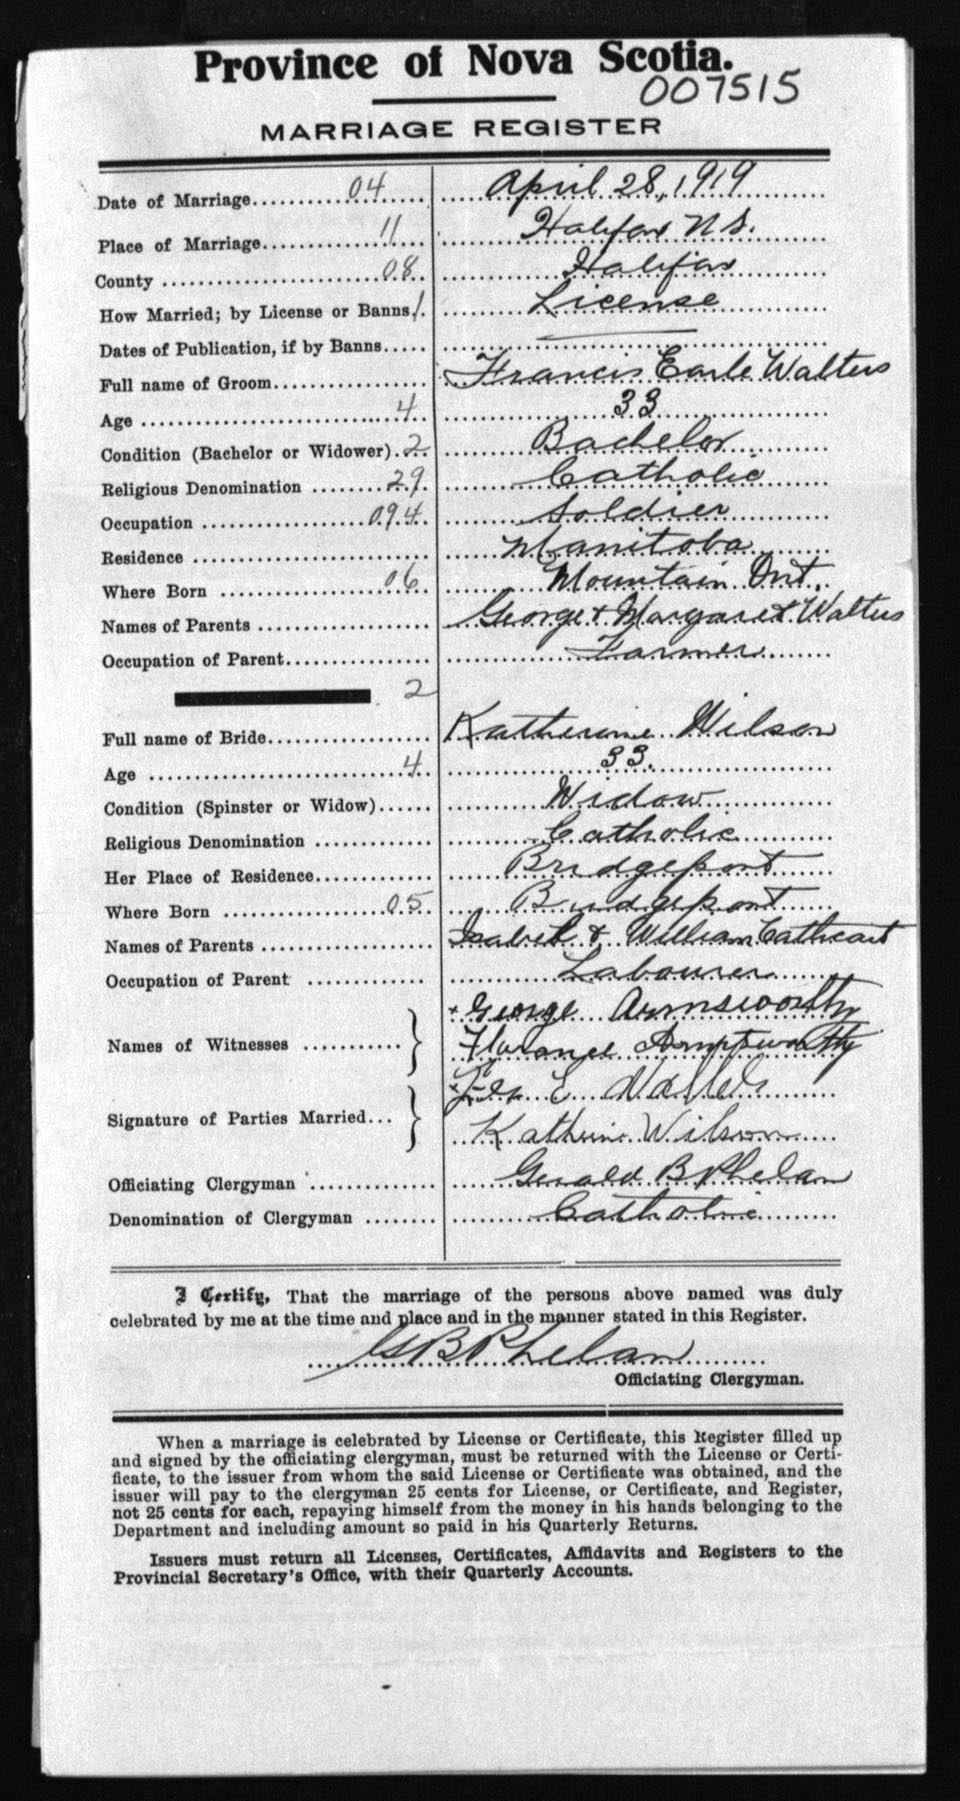 Province of Nova Scotia.
007515
MARRIAGE REGISTER
Date of Marriage 04 April 28, 1919
Place of Marriage 11 Halifax N.S.
County 08 Halifax
How Married; by License or Banns 1 License
Dates of Publication, if by Banns
Full name of Groom Francis Earle Walters
Age 4 33
Condition (Bachelor or Widower) 2 Bachelor
Religious Denomination 29 Catholic
Occupation 094 Soldier
Residence Manitoba
Where Born 06 Mountain Ont.
Names of Parents George & Margaret Walters
Occupation of Parent Farmer
2
Full name of Bride Katherine Wilson
Age 4 33.
Condition (Spinster or Widow) Widow
Religious Denomination Catholic
Her Place of Residence Bridgeport
Where Born 05 Bridgeport
Names of Parents Isabel & William Cathcart
Occupation of Parent Labourer
Names of Witnesses George
Florance
Signature of Parties Married E
Katherine Wilson
Officiating Clergyman Gerald B Phelan
Denomination of Clergyman Catholic
I Certify, That the marriage of the persons above named was duly
celebrated by me at the time and place and in the manner stated in this Register.
G B Phelan
Officiating Clergyman.
When a marriage is celebrated by License or Certificate, this Register filled up
and signed by the officiating clergyman, must be returned with the License or Certi-
ficate, to the issuer from whom the said License or Certificate was obtained, and the
issuer will pay to the clergyman 25 cents for License, or Certificate, and Register,
not 25 cents for each, repaying himself from the money in his hands belonging to the
Department and including amount so paid in his Quarterly Returns.
Issuers must return all Licenses, Certificates, Affidavits and Registers to the
Provincial Secretary's Office, with their Quarterly Accounts.